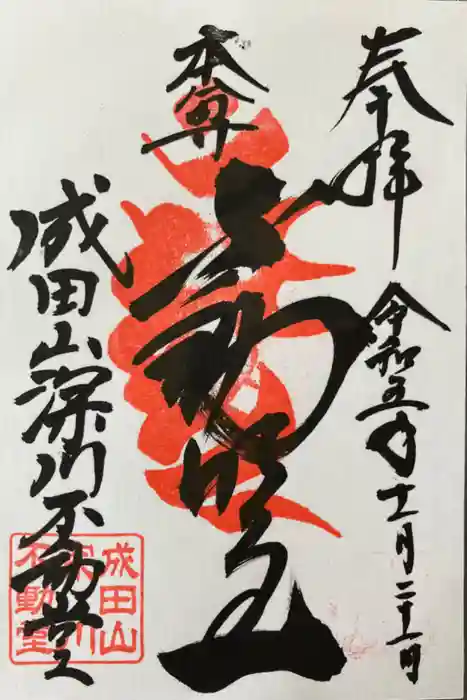 奉拝
令和五年十一月二十一日
本尊
不動明王
成田山深川不動堂
成田山
深川
不動堂